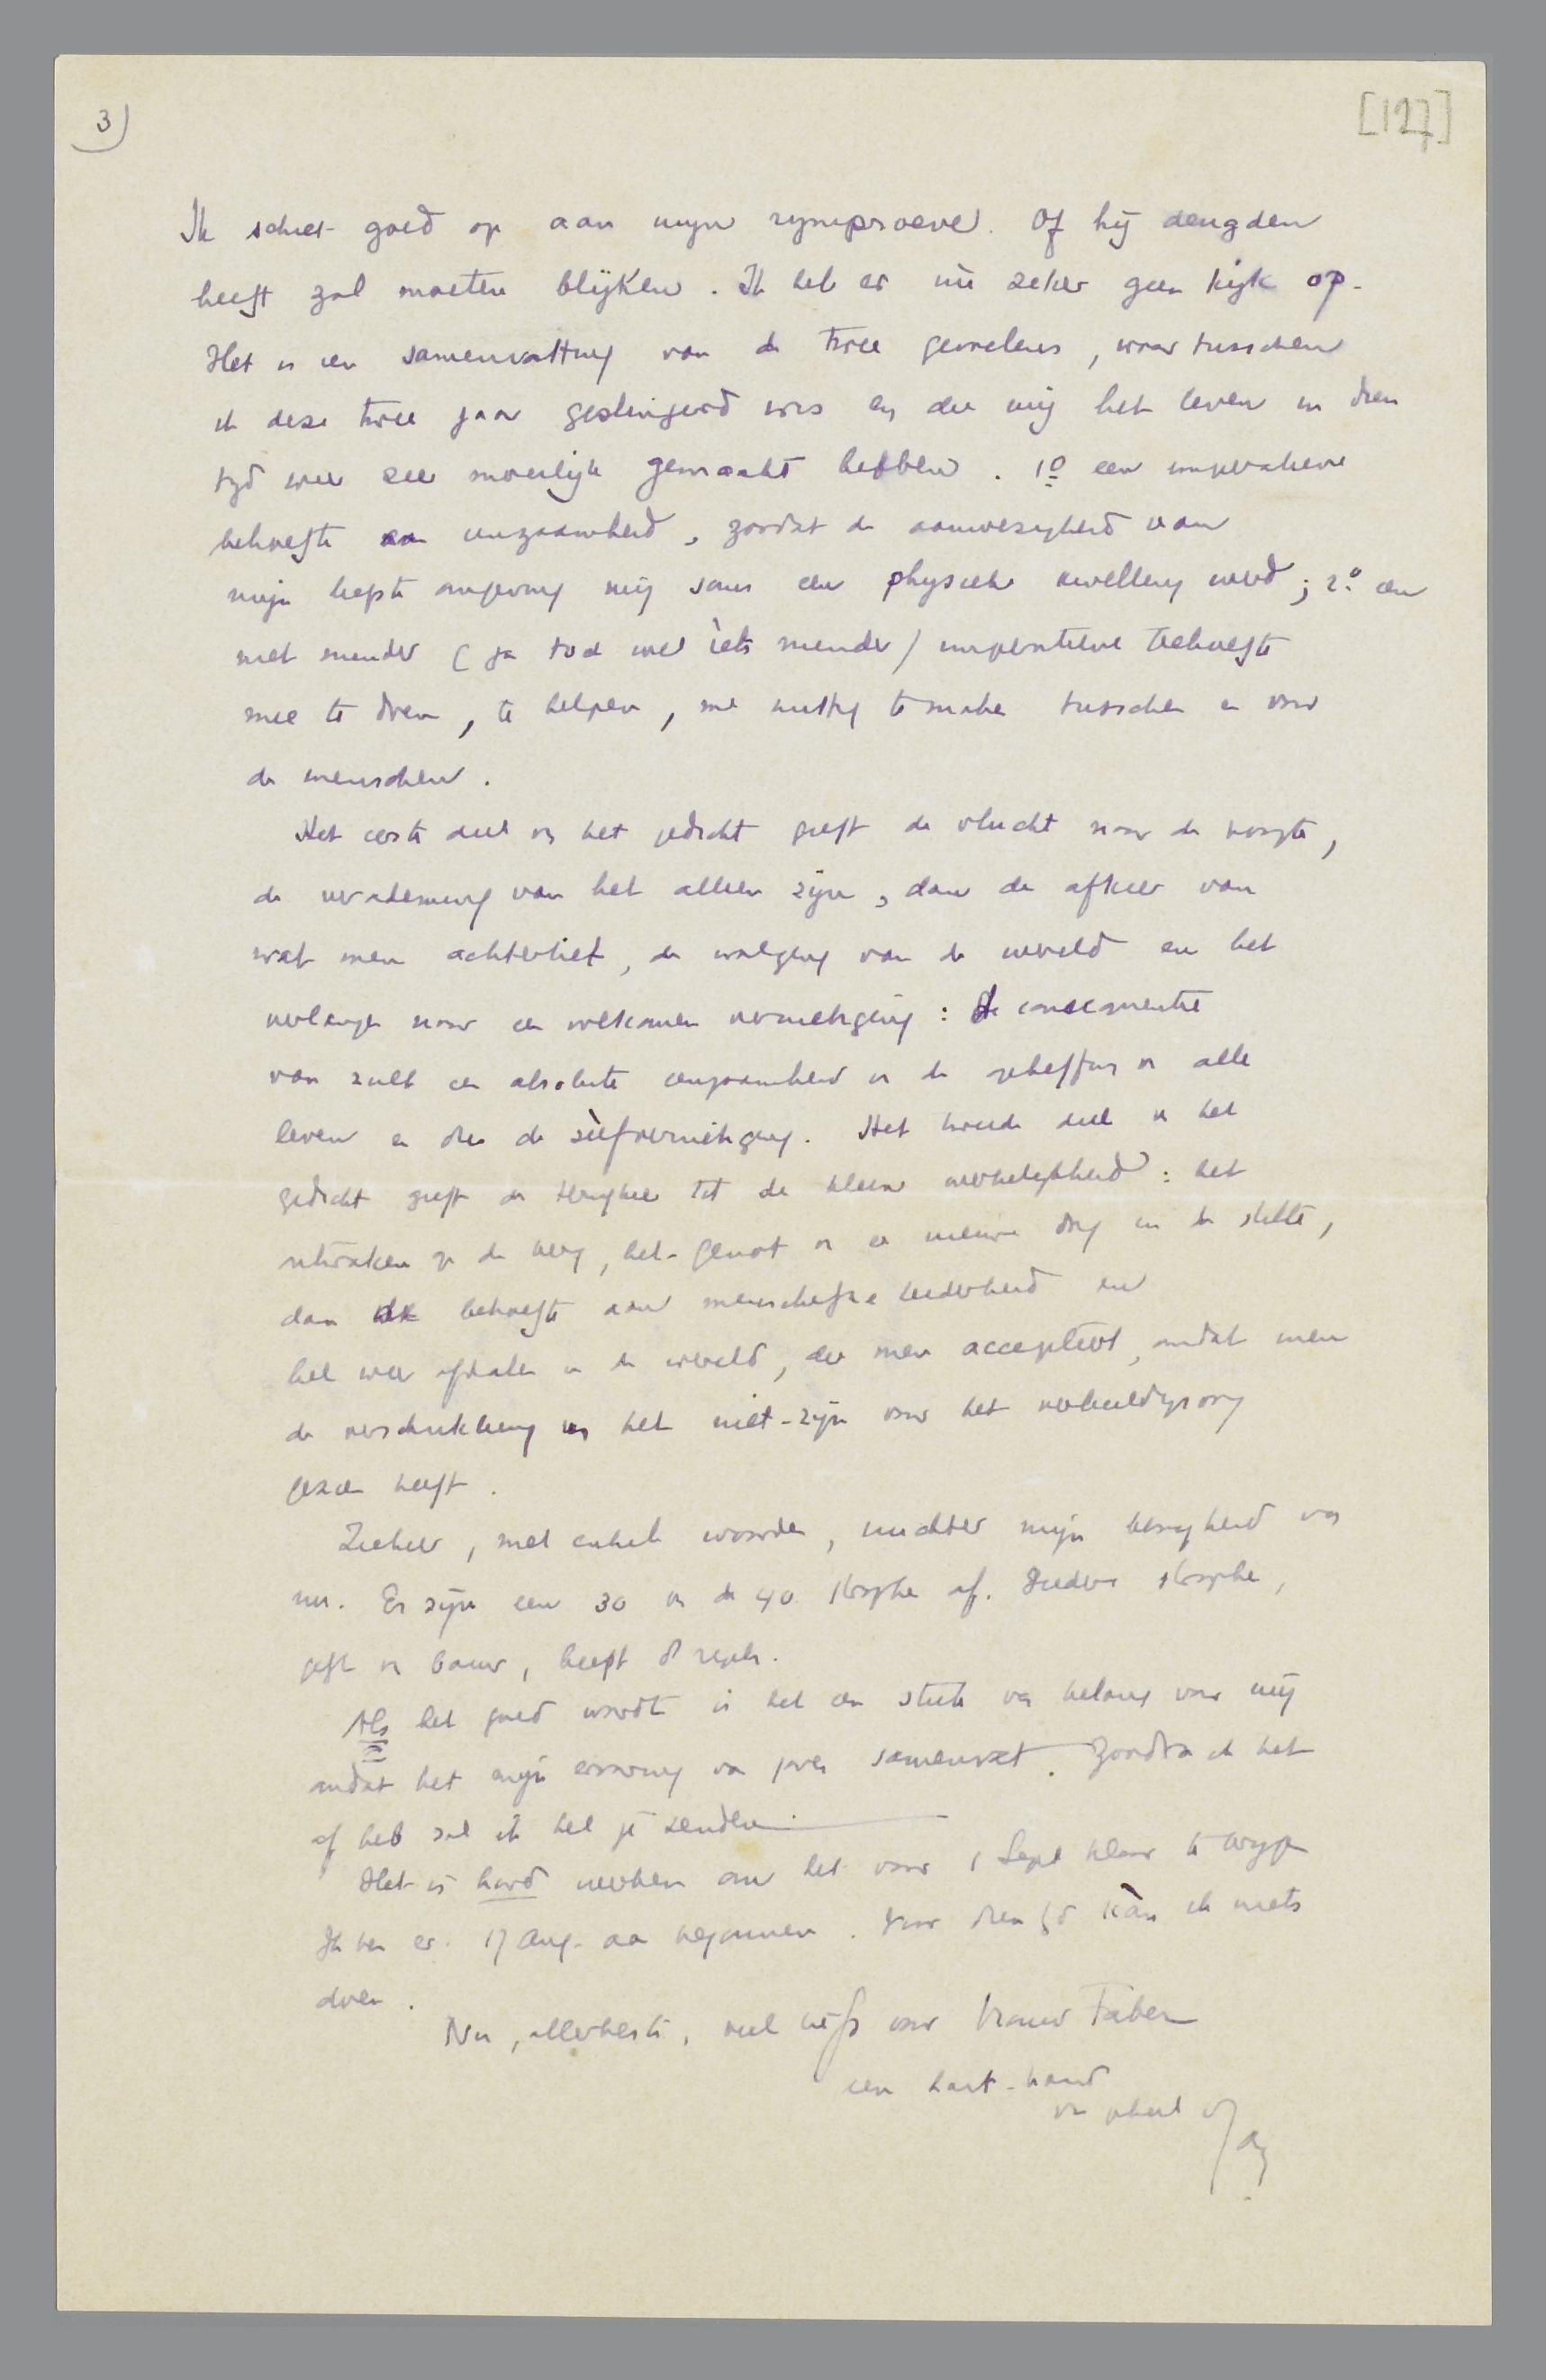 3)
[127]
Ik schiet goed op aan mijn rijmproeve. Of hij deugden
heeft zal moeten blijken. Ik heb er nu zeker geen kijk op.
Het is een samenvatting van de twee gevoelens, waar tusschen
ik deze twee jaar geslingerd was en die mij het leven in dien
tijd weer zeer moeilijk gemaakt hebben. 1º een imperatieve
behoefte aan eenzaamheid, zoodat de aanwezigheid van
mijn liefste omgeving mij soms een physieke kwelling werd; 2º een
niet minder (ja toch wel iets minder) imperatieve behoefte
mee te doen, te helpen, me nuttig te maken tusschen en voor
de menschen.
Het eerste deel v. het gedicht geeft de vlucht naar de hoogte,
de verademing van het alleen zijn, dan de afkeer van
wat men achterliet, de walging van de wereld en het
verlangen naar een volkomen vernietiging: de consequentie
van zulk een absolute eenzaamheid is de opheffing v. alle
leven en dus de zelfvernietiging. Het tweede deel v. het
gedicht geeft de terugkeer tot de kleine werkelijkheid: het
ontwaken op de berg, het genot v. een nieuwe dag in de stilte,
dan de behoefte aan menschelijke teederheid en
het weer afdalen in de wereld, die men accepteert, omdat men
de verschrikking van het niet-zijn voor het verbeeldingsoog
gezien heeft.
Ziehier, met enkele woorden, nuchter mijn bezigheid van
nu. Er zijn een 30 v. de 40 strophen af. Iedere strophe,
heeft 8 regels.
Als het goed wordt is het een stuk van belang voor mij
omdat het mijn ervaring van jaren samenvat. Zoodra ik het
af heb zal ik het je zenden.
Het is hard werken om het voor 1 Sept klaar te krijgen
Ik ben er 17 Aug. aan begonnen. Voor dien tijd kàn ik niets
doen.
Nu, allerbeste, veel liefs voor Vrouw Faber
een hart-hand
van geheel